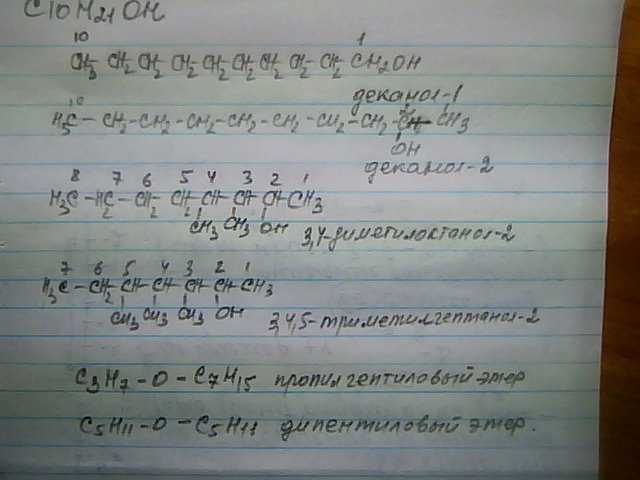 C10H21OH
10 1
CH3 CH2 CH2 CH2 CH2 CH2 CH2 CH2 CH2 CH2OH
деканол-1
10 2
H3C - CH2 - CH2 - CH2 - CH2 - CH2 - CH2 - CH2 - CH - CH3
OH
деканол-2
8 7 6 5 4 3 2 1
H3C - H2C - CH2 - CH2 CH - CH - CH CH3
CH3 CH3 OH 3,4-диметилоктанол-2
7 6 5 4 3 2 1
H3C - CH2 CH - CH - CH - CH - CH3
CH3 CH3 CH3 OH 3,4,5-триметилгептанол-2
C3H7 - O - C7H15 пропилгептиловый этер
C5H11 - O - C5H11 дипентиловый этер.